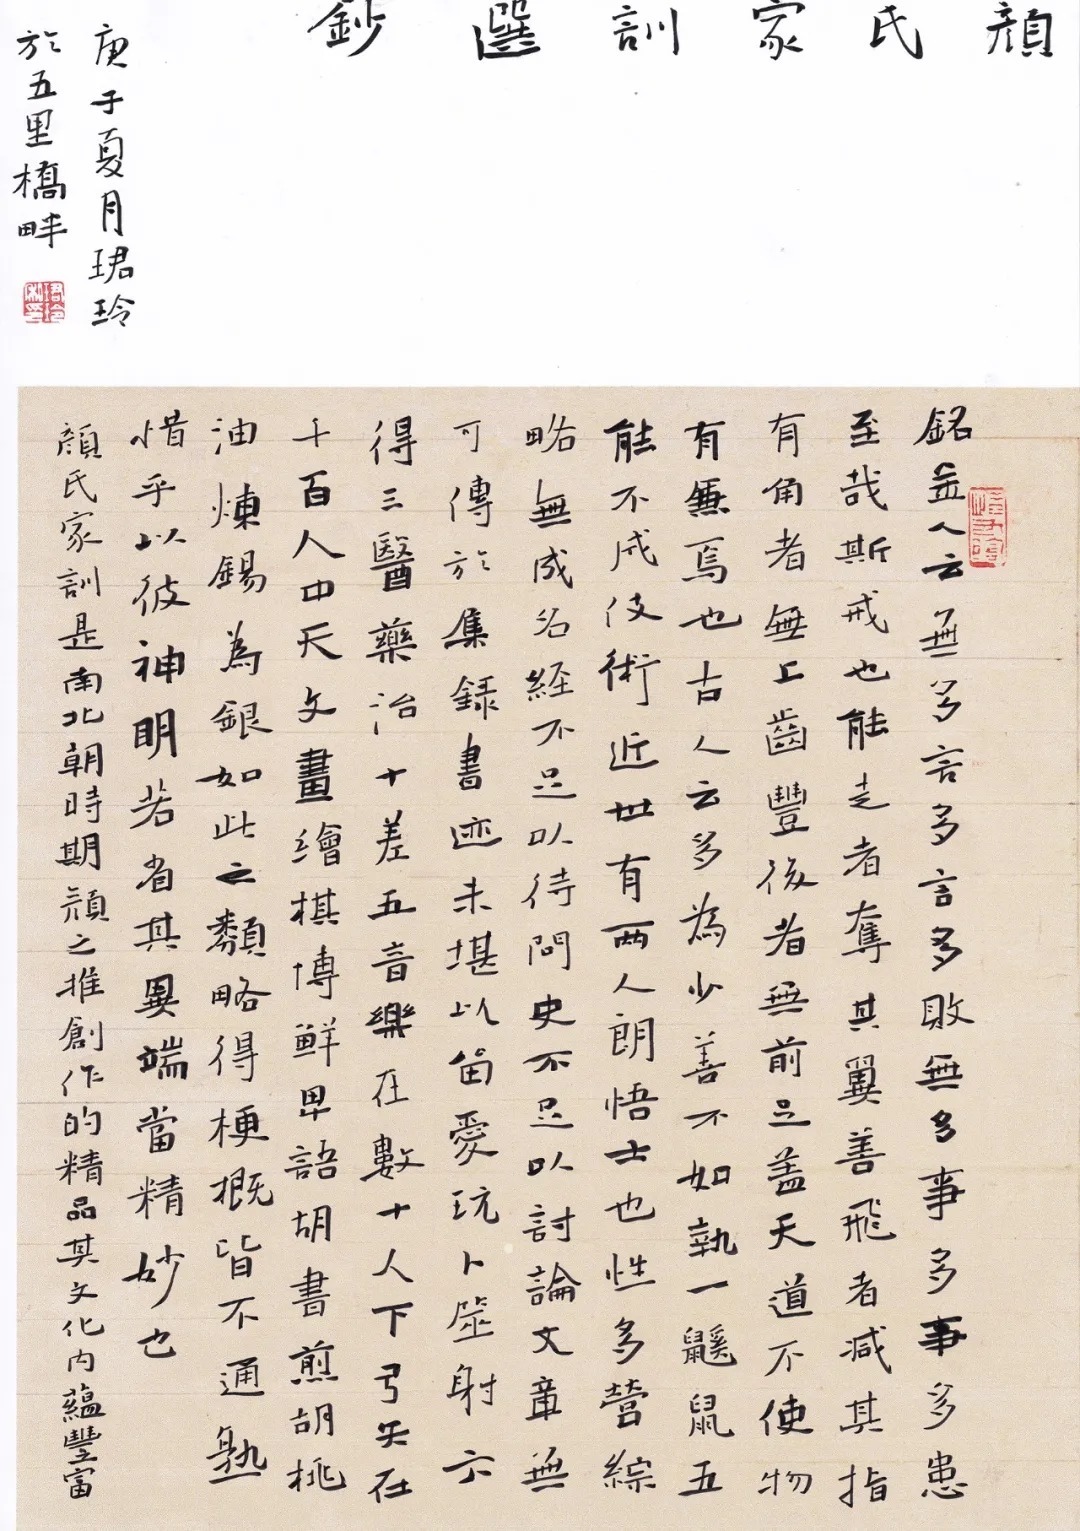 顏氏家訓選鈔
銘金人云無多言多言多敗無多事多事多患
至哉斯戒也能走者奪其翼善飛者減其指
有角者無上齒豐後者無前足蓋天道不使物
有兼焉也古人云多為少善不如執一鼯鼠五
能不成伎術近世有兩人朗悟士也性多營綜
略無成名經不足以待問史不足以討論文章無
可傳於集錄書迹未堪以留愛玩卜筮射六
得三醫藥治十差五音樂在數十人下弓矢在
千百人中天文畫繪棋博鮮卑語胡書煎胡桃
油煉錫為銀如此之類略得梗概皆不通熟
惜乎以彼神明若省其異端當精妙也
顏氏家訓是南北朝時期顏之推創作的精品其文化內蘊豐富
庚子夏月珺玲
於五里橋畔
珺玲私印